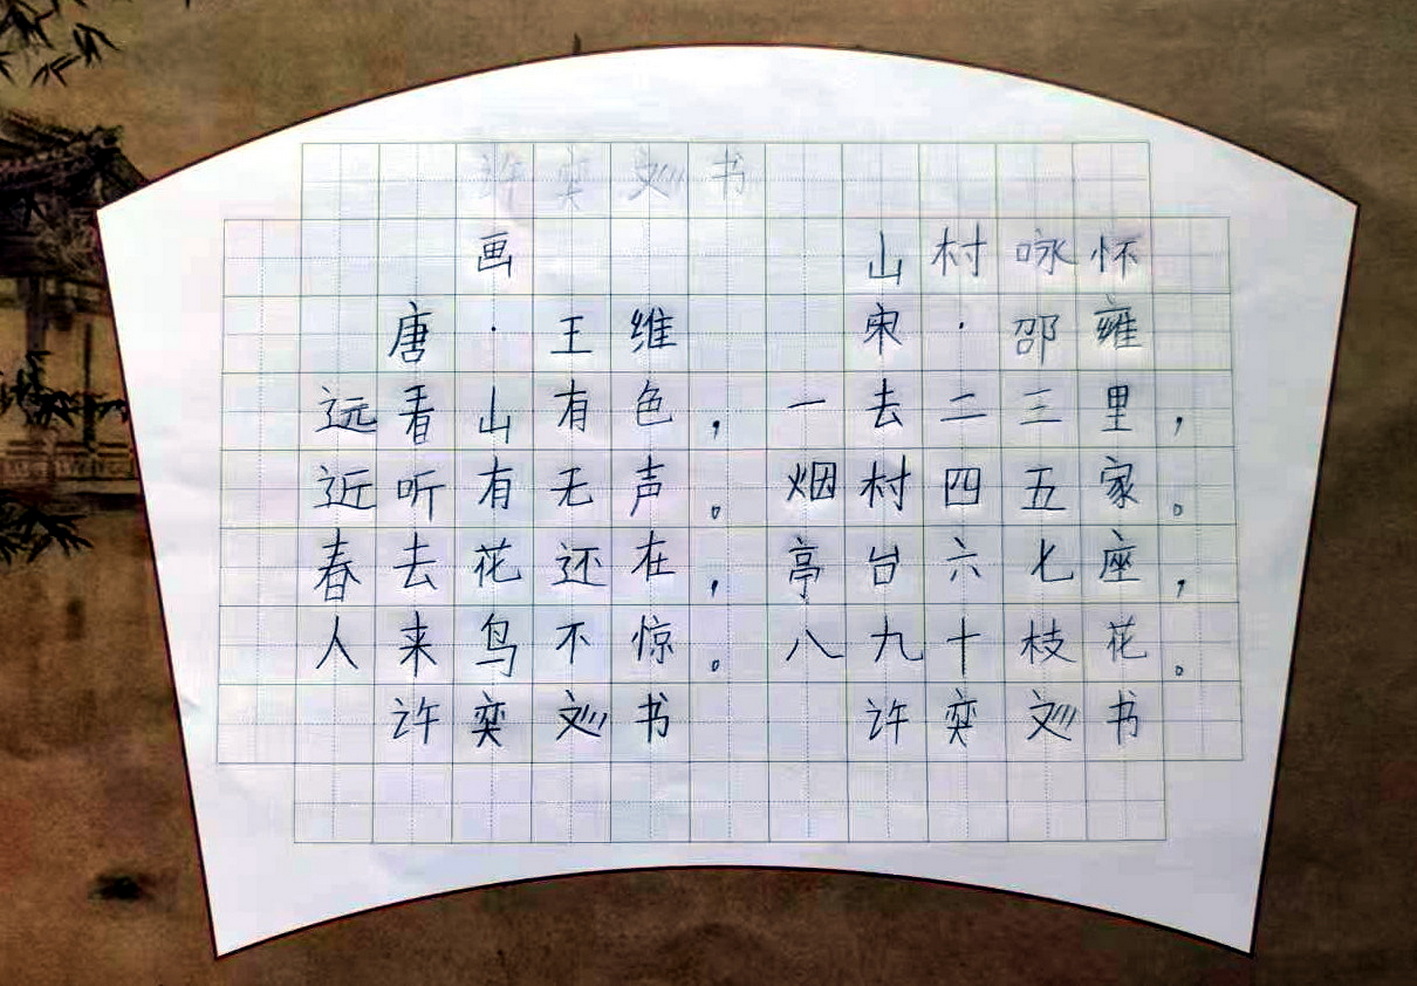 许奕彣书
画
唐·王维
远看山有色，
近听有无声。
春去花还在，
人来鸟不惊。
许奕彣书
山村咏怀
宋·邵雍
一去二三里，
烟村四五家。
亭台六七座，
八九十枝花。
许奕彣书